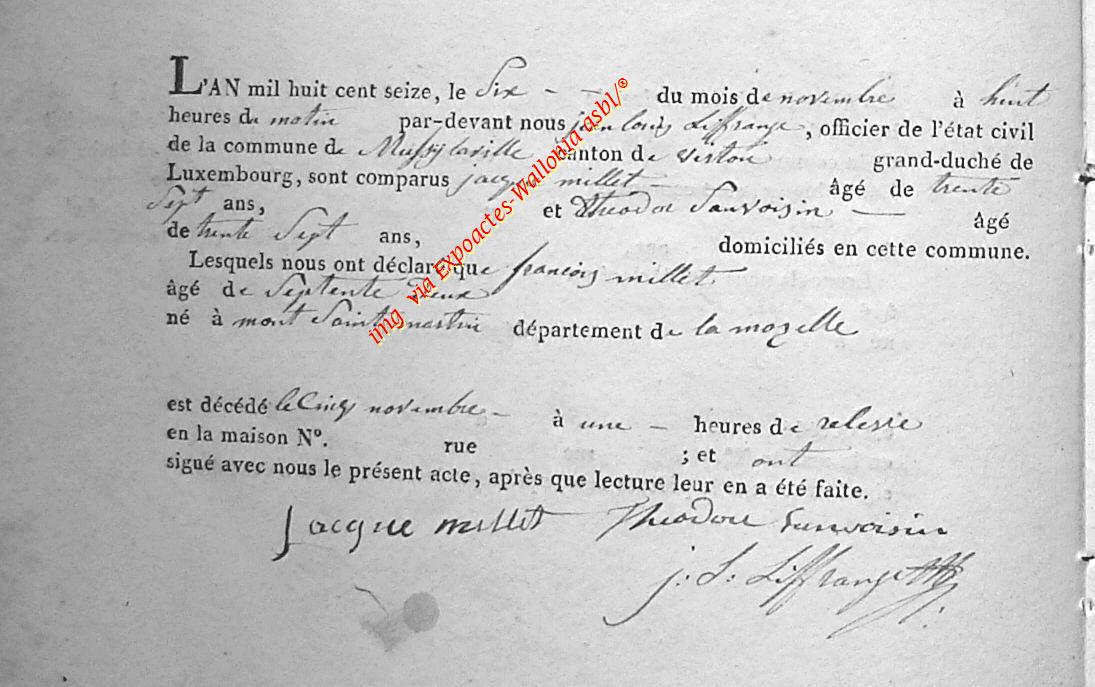 L'AN mil huit cent seize, le Six - - du mois de novembre à huit
heures du matin par-devant nous jean louis Liffrange, officier de l'état civil
de la commune de Mussy laville canton de virton grand-duché de
Luxembourg, sont comparus jacque millet - âgé de trente
Sept ans, et Theodor Sauvoisin — âgé
de trente Sept ans, domiciliés en cette commune.
Lesquels nous ont déclaré que francois millet
âgé de Septente deux
né à mont Saint martin département de la mozelle
est décédé le Cinq novembre - à une - heures de relevée
en la maison Nº. rue ; et ont
signé avec nous le présent acte, après que lecture leur en a été faite.
Jacque millet Theodore Sauvoisin
j: L: Liffrange
img via Expoactes-Wallonia asbl/©